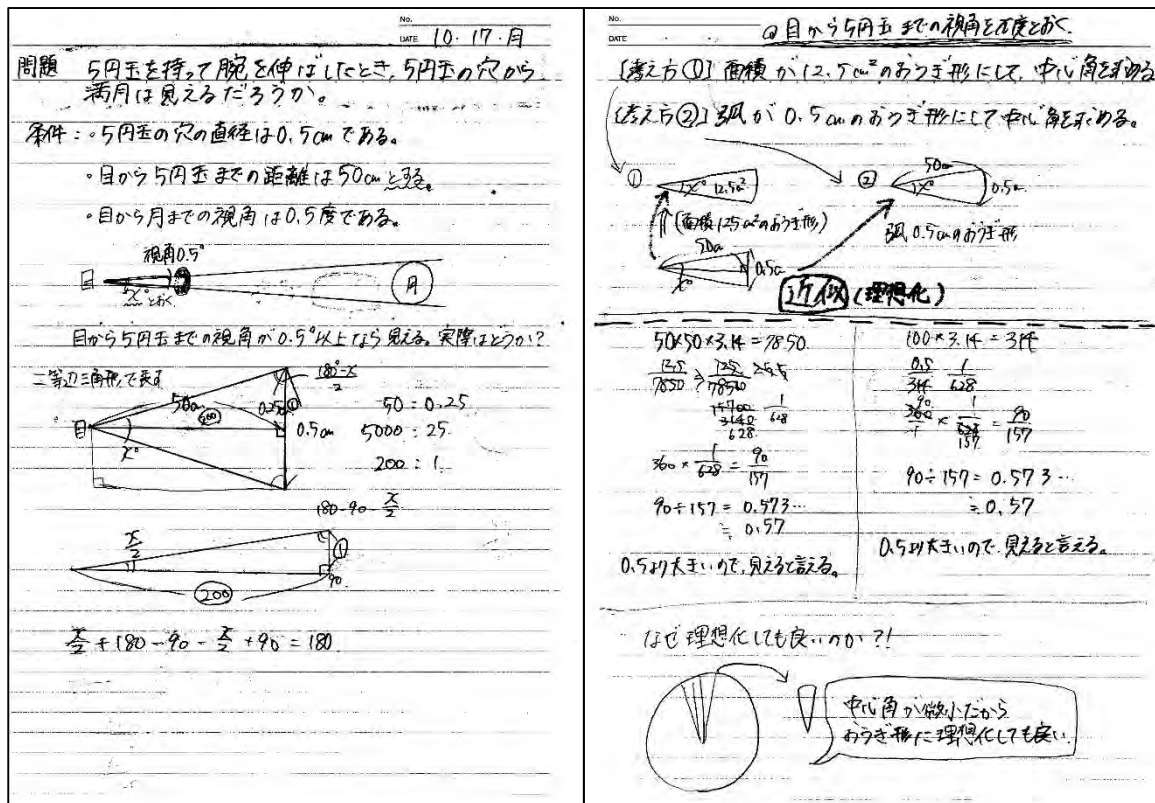 No.
DATE 10・17・月
問題 5円玉を持って腕を伸ばしたとき、5円玉の穴から
満月は見えるだろうか。
条件:・5円玉の穴の直径は0.5cmである。
・目から5円玉までの距離は50cmとする。
・目から月までの視角は0.5度である。
視角0.5°
目
月
x°とおく
目から5円玉までの視角が0.5°以上なら見える。実際はどうか?
二等辺三角形で表す
180°-x/2
50cm
200
0.25
①
0.5cm
目
x°
50:0.25
5000:25
200:1
180-90-x/2
x/2
①
200
90
x/2+180-90-x/2+90=180
No.
DATE
@目から5円玉までの視角をx度とおく
[考え方①] 面積が12.5cm²のおうぎ形にして、中心角を求める
[考え方②] 弧が0.5cmのおうぎ形にして中心角を求める。
① x° 12.5cm²
② 50cm x° 0.5cm
(面積12.5cm²のおうぎ形)
弧0.5cmのおうぎ形
50cm
0.5cm
x°
近似(理想化)
50×50×3.14=7850
12.5/7850 125/78500
15700
3140
628
1/628
360×1/628=90/157
90÷157=0.573…
≒0.57
0.5より大きいので、見えると言える。
100×3.14=314
0.5/314 1/628
360/1×1/628=90/157
90
157
90÷157=0.573…
≒0.57
0.5より大きいので、見えると言える。
なぜ理想化しても良いのか?!
中心角が微小だから
おうぎ形に理想化しても良い